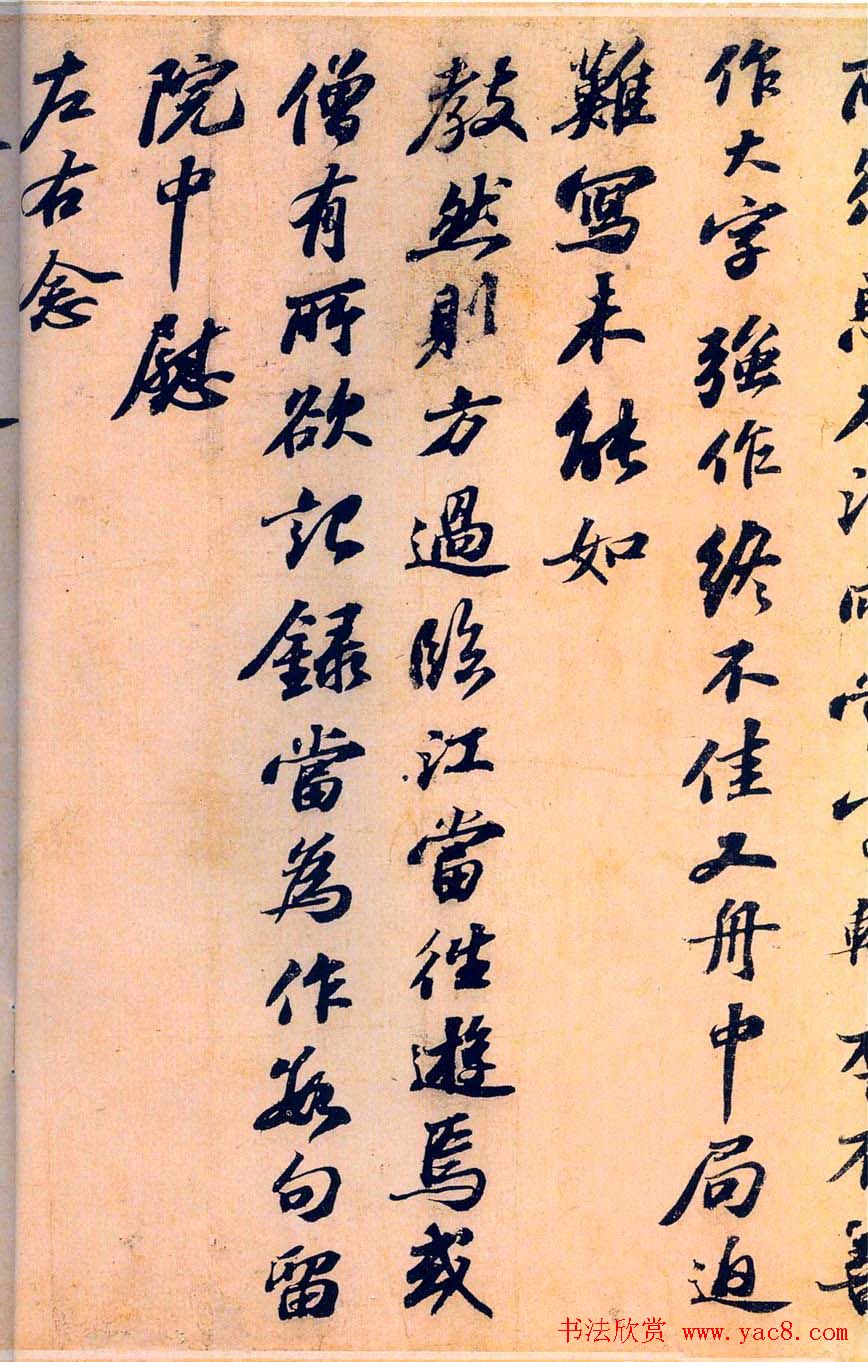 本不善
作大字強作終不佳又舟中局迫
難寫未能如
教然則方過臨江當往遊焉或
僧有所欲記錄當為作數句留
院中慰
左右念
书法欣赏 www.yac8.com